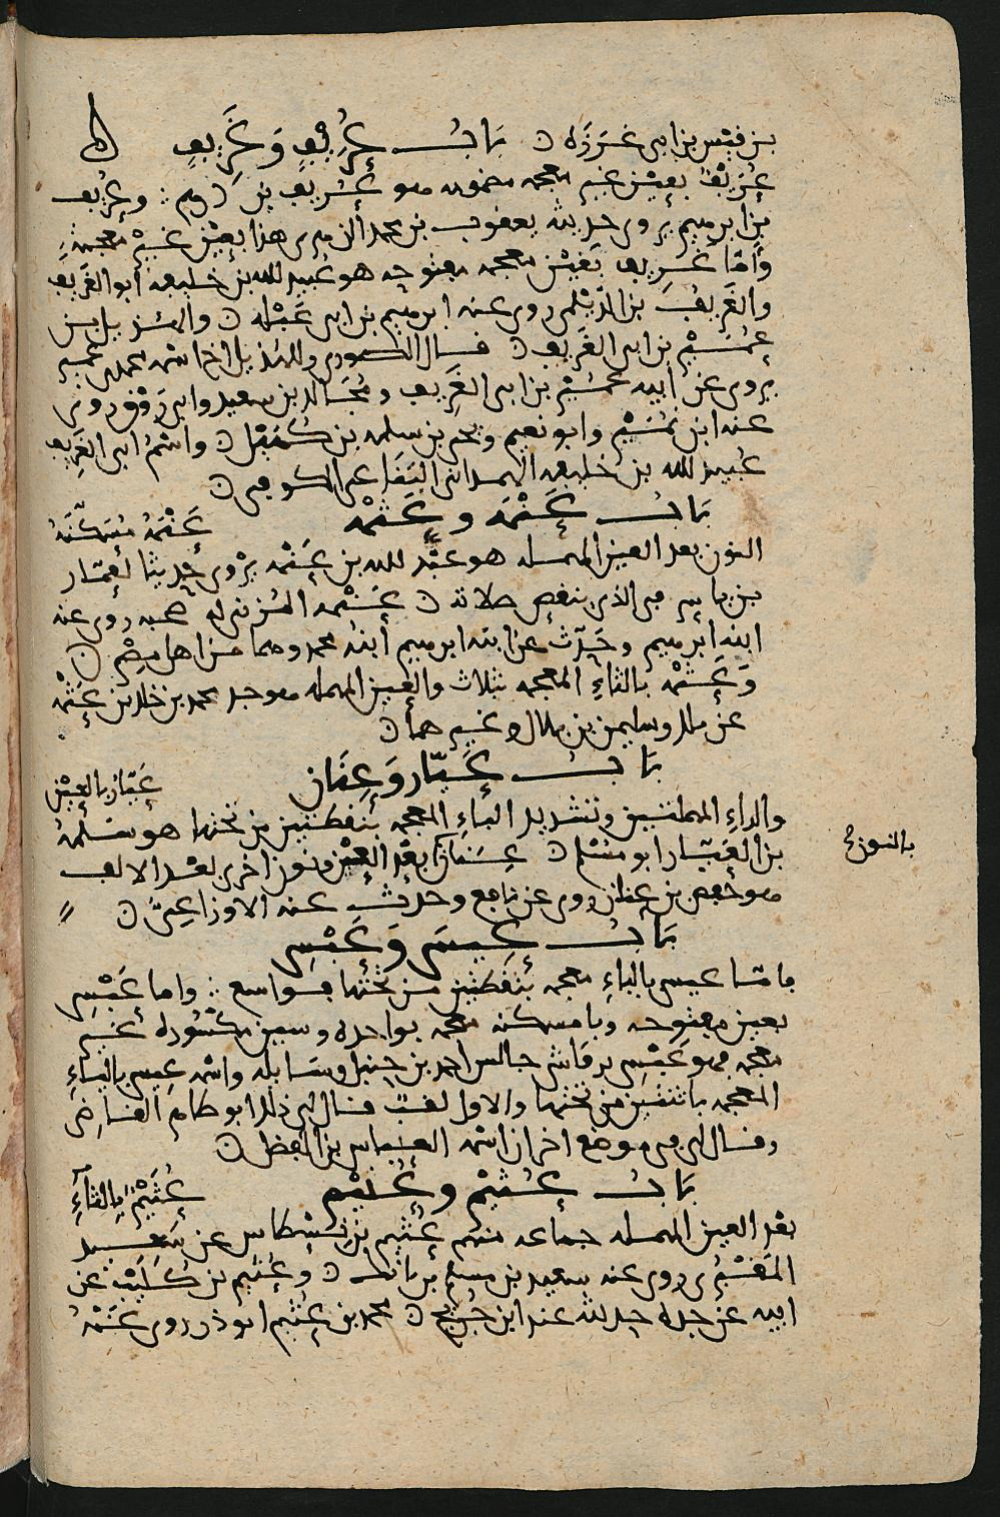 بن قيس بن ابي غرزه ○ باب عُرَيْف وَغَرِيف
عُرَيْف بعين غير معجمه مضمومه هو عُرَيف بن درهم ؞ وعُرَيف
بن ابرهيم يروى حديثه يعقوب بن محمد الزهرى هذا بعين غير معجمه
وامّا غَرِيف بغين معجمه مفتوحه هو عبيد الله بن خليفه ابو الغَرِيف
والغَرِيف بن الدَّيْلمى روى عنه ابرهيم بن ابى عَبْله ○ والهذيل بن
عُمَيْر بن ابى الغَرِيف ○ قال الصورى
يروى عن ابيه عُمَيْر بن ابى الغَرِيف ومجَالد بن سعيد وابى رَوْق روى
عنه ابن نُمَيْر وابو نعيم ويحيى بن سلمه بن كُهَيْل ○ واسْمُ ابى الغَرِيف
عُبيد الله بن خليفه الهمدانى الكوفى ○
بَابُ عَنَمَه وعَثْمَه عَنَمَهُ مُسَكّنَهُ
النون بعد العين المهمله هو عبد الله بن عَنَمه يرْوى حديثا لعمّار
بن ياسر فى الذى ينقص صلاته ○ عَثْمه المُزنى له صحبه روى عنه
ابنه ابرهيم وحَدّث عن ابنه ابرهيم ابنُه محمد وهما من اهل مِصْر ○
وَعَثْمه بالثاءِ المعجمه بثلاث والعين المهمله هو جد محمد بن خلد بن عَثْمه
عن ملك وسليمن بن بلال وغيرهما ○
بَابُ عَيّار وَعِنَان عَيّار بالعيْن
والراءِ المهملتين وتشديد الياءِ المعجمه بنقطتين من تحتها هو سَلَمهُ
بن العَيّار ابو مسْلم ○ عِنَان بعْد العيْن ونون اخرى بعْد الالف
بالنون
هو حفص بن عِنان روى عن نافع وحدث عنه الاوزاعِىّ ○
بَابُ عِيسَى وَعَبْسِى
فامّا عيسى بالياءِ معجمه بنقطتين من تحتها فواسع ؞ واما عَبْسِى
بعين مفتوحه وبا مسكنه معجمه بواحده وسين مكسُوره غير
معجمه فهو عَبْسِى بن قاش جالس احمد بن حنبل وسَايله واسمه عيسى بالياءِ
المعجمه باثنتين من تحتها والاول لقب قال لى ذلك ابو طاهر القاضى
وقال لى فى موضع اخر ان اسمه العباس بن الفضل ○
بَابُ عُثَيْم وغُنَيْم عُثَيْم بالثاءِ
بعْد العين المهمله جماعه منهم عُثَيم بن نِسْطاس عن سَعيد
المَقْبُرى روى عنه سعيد بن مسلم بن بانك ○ وعُثَيم بن كُلَيْب عن
ابيه عن جده حديثه عند ابن جُرَيْج ○ محمد بن عُثَيم ابو ذر روى عَنْهُ